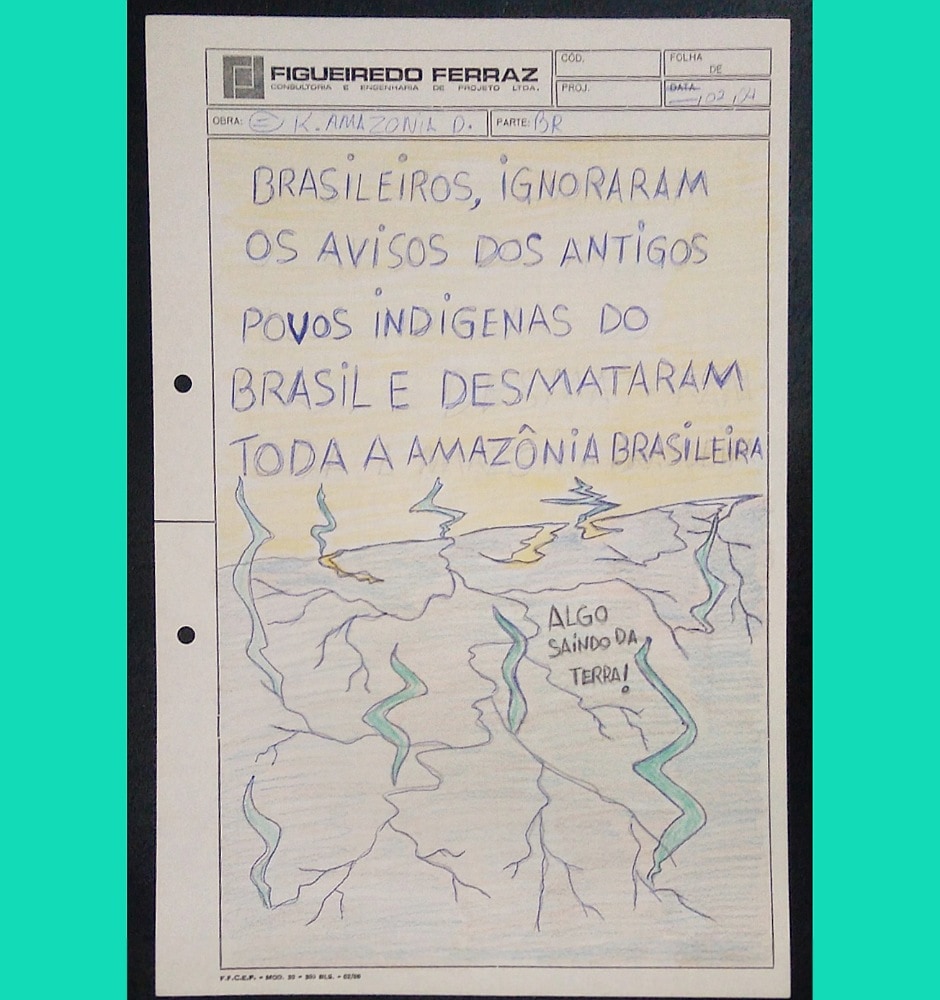 FIGUEIREDO FERRAZ
CONSULTORIA E ENGENHARIA DE PROJETO LTDA.
CÓD.
FOLHA
DE
PROJ.
DATA
02
OBRA: K. AMAZONIA D.
PARTE: BR
BRASILEIROS, IGNORARAM
OS AVISOS DOS ANTIGOS
POVOS INDIGENAS DO
BRASIL E DESMATARAM
TODA A AMAZÔNIA BRASILEIRA
ALGO
SAINDO DA
TERRA!
F.F.C.E.P. - MOD.